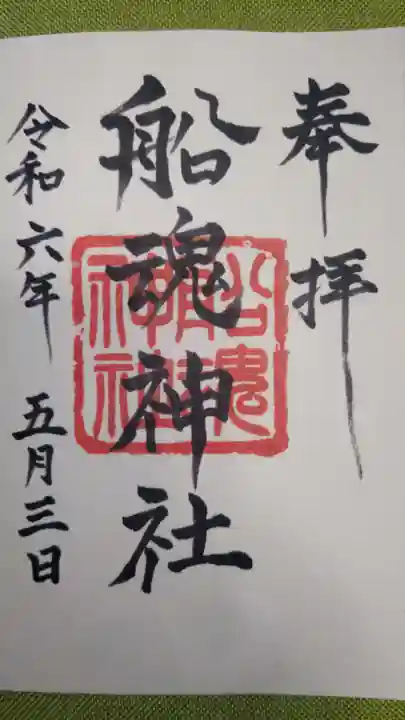 奉拝
船魂神社
船魂
神社
令和六年 五月三日